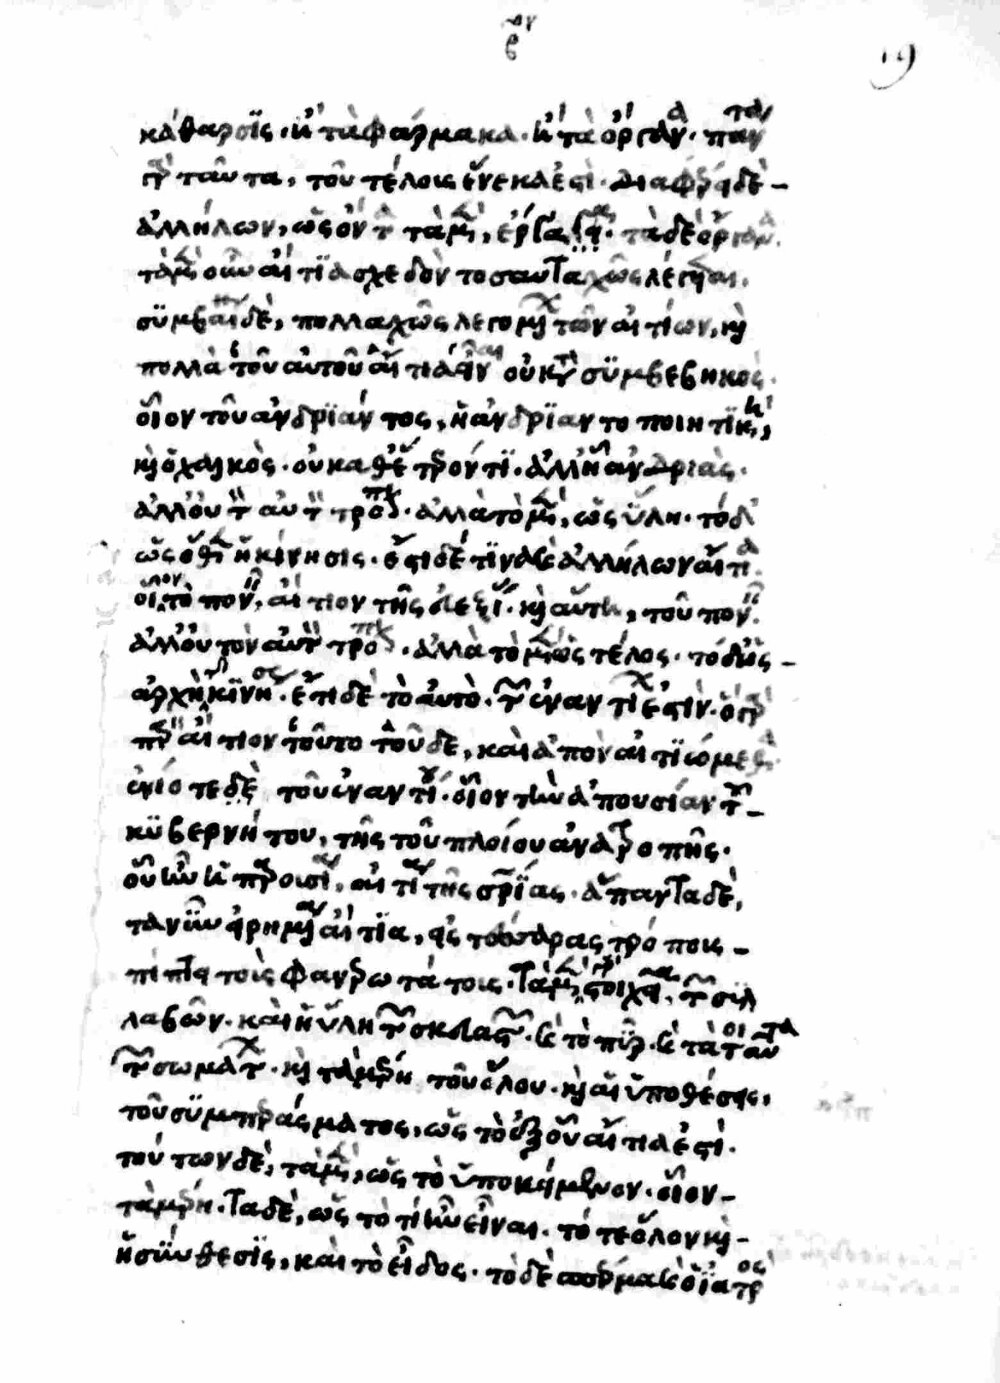 19
κάθαρσϊς · κ τὰ φάρμακα · κ τὰ όργαν · παν
γρ ταῦτα, τοῦ τέλους ἕνεκά ἐστὶ · διαφέρει δὲ -
ἀλλήλων, ὡς ὄντ τὰ μ, ἔργα, τὰ δὲ ὄργαν.
τὰ μ οὖν αἴτϊα σχεδὸν τοσαυταχῶς λέγεται.
σϋμβαίνει δὲ, πολλαχῶς λεγομ τῶν αἰτίων, κ
πολλὰ τοῦ αὐτοῦ αἴτια εἶναι οὐ κτ σϋμβεβηκος.
οἷον τοῦ ἀνδρϊάντος, ἡ ἀνδρϊαντοποιητϊκὴ,
κ ὁ χαλκὸς · οὐ καθ ἕτερόν τϊ · ἀλλ ᾗ ἀνδριὰς.
ἀλλ οὐ τ αὐτ τρόπ · ἀλλὰ τὸ μ, ὡς ὕλη · τὸ δ
ὡς ὅθεν ἡ κίνησις · ἔστι δέ τϊνα κ ἀλλήλων αἴτια.
οἷον τὸ πον, αἴτιον τῆς εὐεξί · κ αὕτη, τοῦ πον.
ἀλλ οὐ τὸν αὐτ τρόπ · ἀλλὰ τὸ μ ὡς τέλος · τὸ δ ὡς -
ἀρχὴ κϊνήσ · ἔτι δὲ τὸ αὐτὸ τ ἐναντί ἐστὶν · ὃ γρ
πρ αἴτιον τοῦτο τοῦδε, καὶ ἀπὸν αἰτϊώμεθα
ἐνίοτε δὲ τοῦ ἐναντί · οἷον τὴν ἀπουσίαν τ -
κϋβερνήτου, τῆς τοῦ πλοίου ἀνατροπῆς.
οὗ ἦν ἡ παρουσί, αἰτί τῆς σρϊας · ἅπαντα δὲ,
τὰ νῦν εἰρημ αἴτϊα, εἰς τέσσαρας τρόπους -
πίπτει τοὺς φανερωτάτους · τὰ μ γρ στοιχεῖα τ σϋλ
λαβῶν · καὶ ἡ ὕλη τ σκευαστ · κ τὸ πῦρ · κ τὰ τοιαῦτα
τ σωμάτ · κ τὰ μέρη τοῦ ὅλου · κ αἱ ὑποθέσεις,
τοῦ σϋμπεράσματος, ὡς τὸ ἐξ οὗ αἴτιά ἐστι.
τούτων δὲ, τὰ μ, ὡς τὸ ὑποκείμενον · οἷον -
τὰ μέρη · τὰ δὲ, ὡς τὸ τί ἦν εἶναι · τό τε ὅλον κ -
ἡ σϋνθεσϊς, καὶ τὸ εἶδος · τὸ δὲ σπέρμα κ ὁ ἰατρὸς